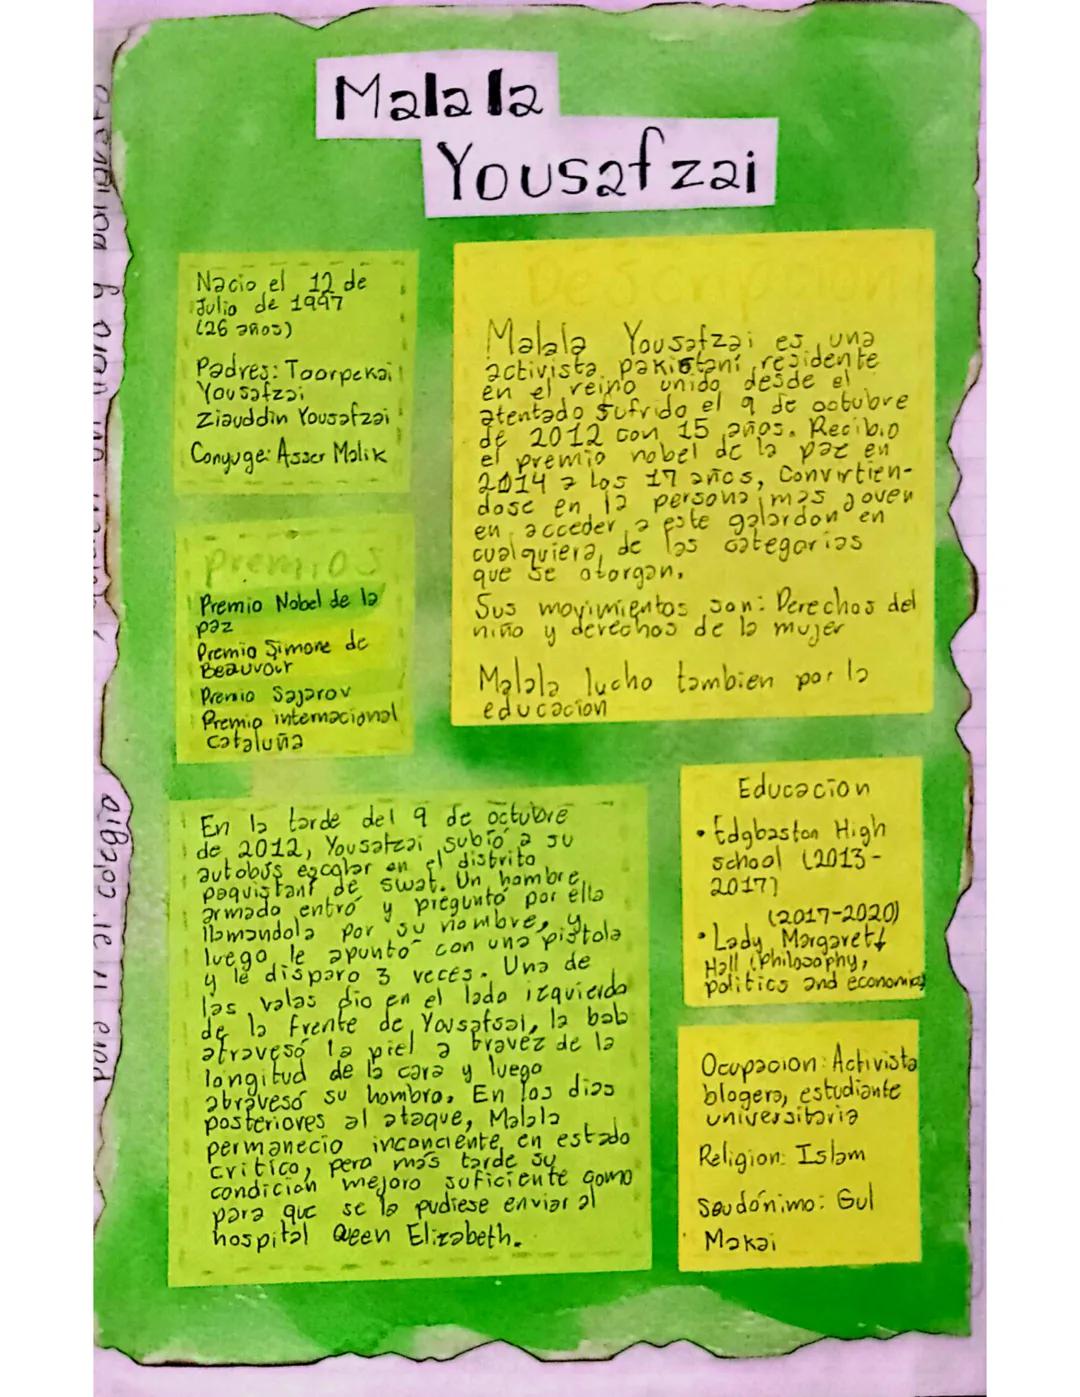 Malala
Yousafzai
Nacio el 12 de
Julio de 1997
(26 años)
Padres: Toorpekai
Yousafzai
Ziauddin Yousafzai
Conyuge: Asser Malik
Premios
Premio Nobel de la
paz
Premio Simone de
Beauvoir
Premio Sajarov
Premio internacional
Cataluña
Malala Yousafzai es una
activista pakistaní, residente
en el reino unido desde el
atentado sufrido el 9 de octubre
de 2012 con 15 años. Recibio
el premio nobel de la paz en
2014 a los 17 años, Convirtien-
dose en la persona mas joven
en acceder a este galardon en
cualquiera de las categorias
que se otorgan.
Sus movimientos son: Derechos del
niño y derechos de la mujer
Malala lucho tambien por la
educacion
En la tarde del 9 de octubre
de 2012, Yousafzai subió a su
autobús escolar en el distrito
paquistaní de swat. Un hombre
armado entró y preguntó por ella
llamandola por su nombre, y
luego le apuntó con una pistola
y le disparo 3 veces. Una de
las valas dio en el lado izquierdo
de la frente de Yousafsai, la bala
atravesó la piel a travez de la
longitud de la cara y luego
atravesó su hombro. En los dias
posteriores al ataque, Malala
permanecio inconciente en estado
critico, pero más tarde su
condicion mejoro suficiente como
para que se la pudiese enviar al
hospital Queen Elizabeth.
Educacion
• Edgbaston High
school (2013-
2017)
(2017-2020)
• Lady Margaret
Hall (Philosophy,
politics and economics
Ocupacion: Activista
blogera, estudiante
universitaria
Religion: Islam
Seudónimo: Gul
Makai